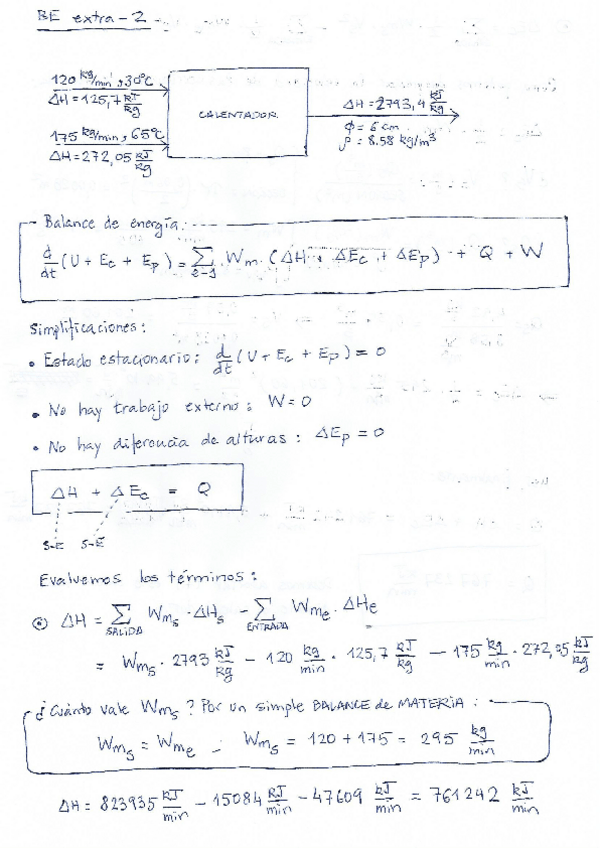 BE extra-2
120 kg/min, 30°C
ΔH = 125,7 kJ/kg
175 kg/min, 65°C
ΔH = 272,05 kJ/kg
CALENTADOR
ΔH = 2793,4 kJ/kg
φ = 6 cm
ρ = 8.58 kg/m³
Balance de energía:
d/dt (U + Ec + Ep) = Σ Wm · (ΔH + ΔEc + ΔEp) + Q + W
Simplificaciones:
• Estado estacionario: d/dt (U + Ec + Ep) = 0
• No hay trabajo externo: W = 0
• No hay diferencia de alturas: ΔEp = 0
ΔH + ΔEc = Q
S-E S-E
Evaluemos los términos:
ΔH = Σ SALIDA Wms · ΔHs - Σ ENTRADA Wme · ΔHe
= Wms · 2793 kJ/kg - 120 kg/min · 125,7 kJ/kg - 175 kg/min · 272,05 kJ/kg
¿Cuánto vale Wms? Por un simple BALANCE de MATERIA:
Wms = Wme Wms = 120 + 175 = 295 kg/min
ΔH = 823935 kJ/min - 15084 kJ/min - 47609 kJ/min = 761242 kJ/min